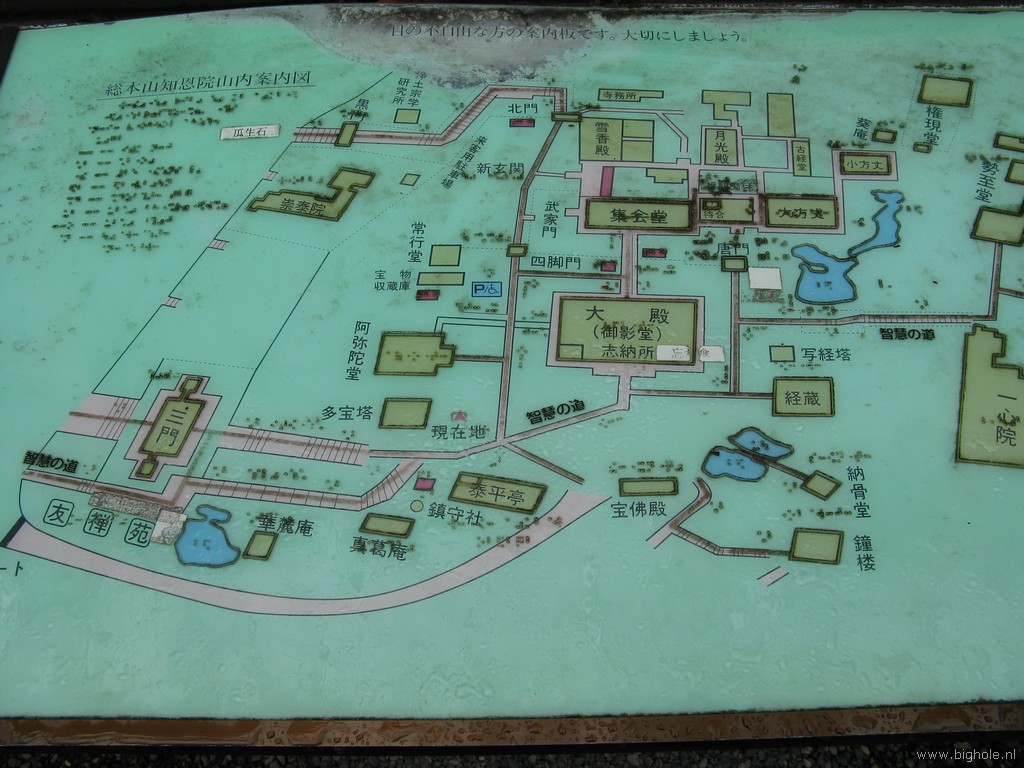 目の不自由な方の案内板です。大切にしましょう。
総本山知恩院山内案内図
浄土宗学
研究所
黒門
瓜生石
北門
寺務所
雪香殿
月光殿
古経堂
葵庵
権現堂
小方丈
勢至堂
来客用駐車場
新玄関
崇泰院
武家門
集会堂
待合
大方丈
常行堂
四脚門
唐門
宝物
収蔵庫
P
大殿
(御影堂)
志納所
智慧の道
阿弥陀堂
写経塔
多宝塔
現在地
智慧の道
経蔵
一心院
三門
智慧の道
納骨堂
泰平亭
宝佛殿
鎮守社
友禅苑
華麓庵
真葛庵
鐘楼
ート
www.bighole.nl